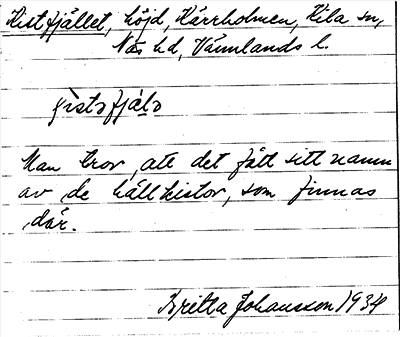 Kistfjället, höjd, Kärrholmen, Kila sn,
Näs hd, Värmlands l.
çìstəfjä̀lə
Man tror, att det fått sitt namn
av de hällkistor, som finnas
där.
Britta Johansson 1934